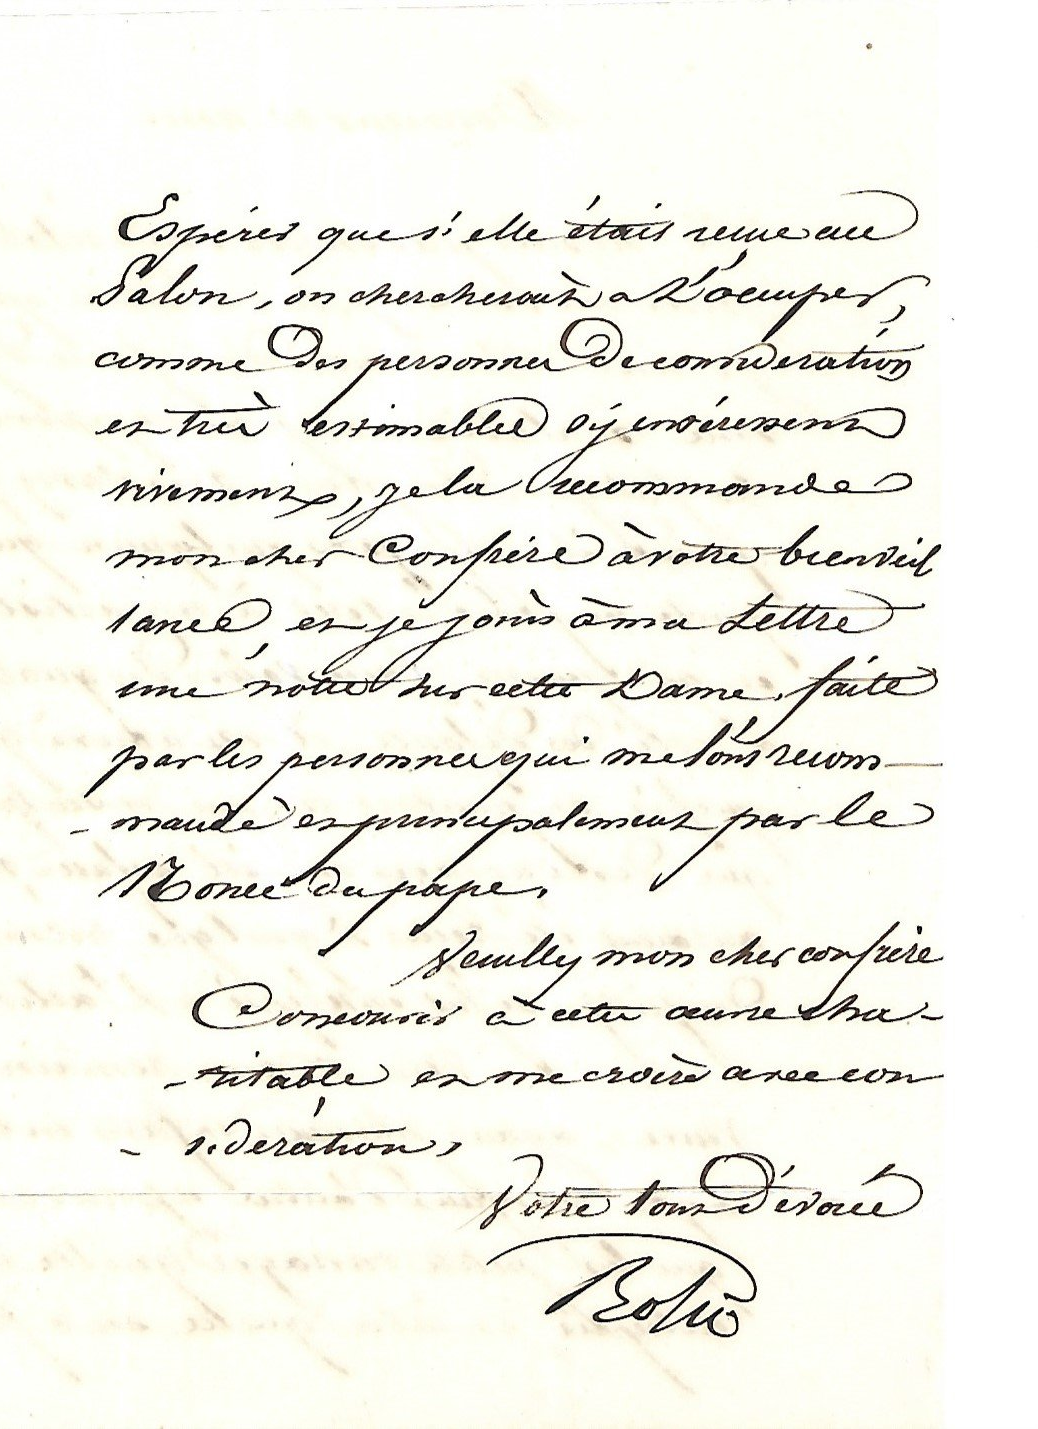 Espérer que s'elle étais reçue au
Salon, on chercherait a L'ocuper,
comme Des personnes De consideration
et très estimables s'y intéressent
vivement, je la recommande
mon cher Confrère à votre bienveil
lance, et je joins à ma Lettre
une notte sur cette Dame, faite
par les personnes qui me l'ons recom-
-mandé et principalement par le
Nonce du pape.
Veuilley mon cher confrère
Concourir à cette œuvre cha-
-ritable et me croire avec con
-sideration,
Votre tout Dévoué
Bosio